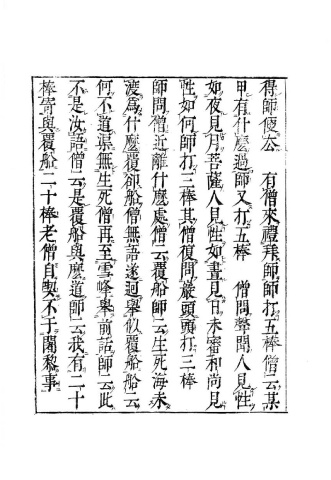 得師便厺　有僧來禮拜師師打五棒僧云某
甲有什麽過師又打五棒　僧問聲聞人見性
如夜見月菩薩人見性如晝見日未審和尚見
性如何師打三棒其僧復問巖頭頭打三棒
師問僧近離什麽處僧云覆船師云生死海未
渡爲什麽覆卻船僧無語遂迴舉似覆船船云
何不道渠無生死僧再至雪峰舉前話師云此
不是汝語僧云是覆船與麽道師云我有二十
棒寄與覆船二十棒老僧自喫不干闍黎事